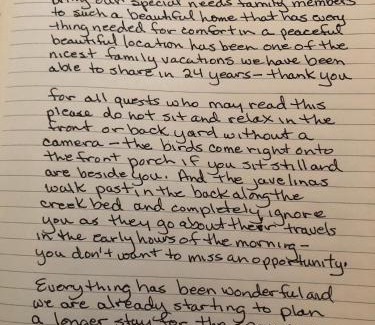 bring our special needs family members
to such a beautiful home that has every
-thing needed for comfort in a peaceful
beautiful location has been one of the
nicest family vacations we have been
able to share in 24 years - thank you
for all quests who may read this
please do not sit and relax in the
front or back yard without a
camera - the birds come right onto
the front porch if you sit still and
are beside you. And the javelinas
walk past in the back along the
creek bed and completely ignore
you as they go about their travels
in the early hours of the morning -
you don't want to miss an opportunity.
Everything has been wonderful and
we are already starting to plan
a longer stay for the